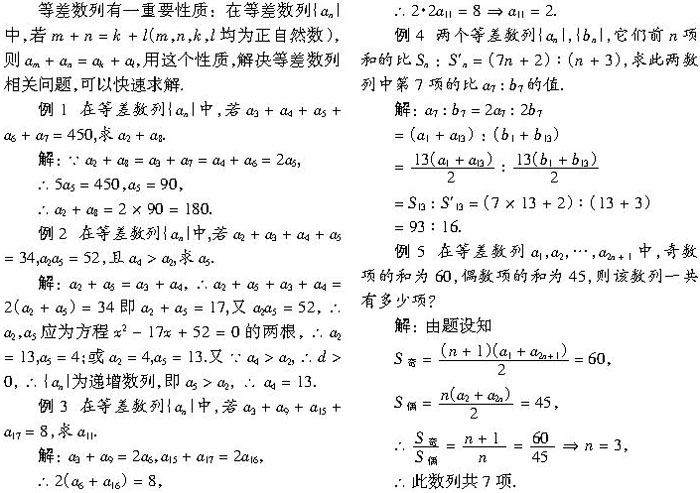 等差数列有一重要性质：在等差数列{aₙ}
中,若 m + n = k + l(m,n,k,l 均为正自然数),
则 aₘ + aₙ = aₖ + aₗ,用这个性质,解决等差数列
相关问题,可以快速求解.
例 1 在等差数列{aₙ}中,若 a₃ + a₄ + a₅ +
a₆ + a₇ = 450,求 a₂ + a₈.
解：∵ a₂ + a₈ = a₃ + a₇ = a₄ + a₆ = 2a₅,
∴ 5a₅ = 450 ,a₅ = 90,
∴ a₂ + a₈ = 2 × 90 = 180.
例 2 在等差数列{aₙ}中,若 a₂ + a₃ + a₄ + a₅
= 34,a₂a₅ = 52 ,且 a₄ > a₂,求 a₅.
解：a₂ + a₅ = a₃ + a₄, ∴ a₂ + a₅ + a₃ + a₄ =
2(a₂ + a₅) = 34 即 a₂ + a₅ = 17,又 a₂a₅ = 52, ∴
a₂,a₅ 应为方程 x² − 17x + 52 = 0 的两根, ∴ a₂
= 13,a₅ = 4;或 a₂ = 4,a₅ = 13.又 ∵ a₄ > a₂, ∴ d >
0, ∴ {aₙ}为递增数列,即 a₅ > a₂, ∴ a₄ = 13.
例 3 在等差数列{aₙ}中,若 a₃ + a₉ + a₁₅ +
a₁₇ = 8 ,求 a₁₁.
解：a₃ + a₉ = 2a₆,a₁₅ + a₁₇ = 2a₁₆,
∴ 2(a₆ + a₁₆) = 8,
∴ 2·2a₁₁ = 8 ⇒ a₁₁ = 2.
例 4 两个等差数列{aₙ},{bₙ},它们前 n 项
和的比 Sₙ : S′ₙ = (7n + 2) : (n + 3),求此两数
列中第 7 项的比 a₇ : b₇ 的值.
解：a₇ : b₇ = 2a₇ : 2b₇
= (a₁ + a₁₃) : (b₁ + b₁₃)
= 13(a₁ + a₁₃)/2 : 13(b₁ + b₁₃)/2
= S₁₃ : S′₁₃ = (7 × 13 + 2) : (13 + 3)
= 93 : 16.
例 5 在等差数列 a₁,a₂, ⋯ ,a₂ₙ₊₁ 中,奇数
项的和为 60,偶数项的和为 45,则该数列一共
有多少项?
解：由题设知
S奇 = (n + 1)(a₁ + a₂ₙ₊₁)/2 = 60,
S偶 = n(a₂ + a₂ₙ)/2 = 45,
∴ S奇/S偶 = (n + 1)/n = 60/45 ⇒ n = 3,
∴ 此数列共 7 项.